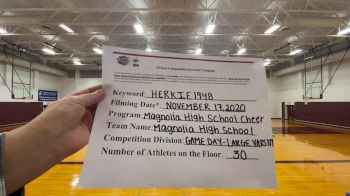 Virtual Competition Keyword Template
Keyword: HERKIE1948
Filming Date*: NOVEMBER 17, 2020
Program: Magnolia High School Cheer
Team Name: Magnolia High School
Competition Division: GAME DAY - LARGE VARSITY
Number of Athletes on the Floor: 30